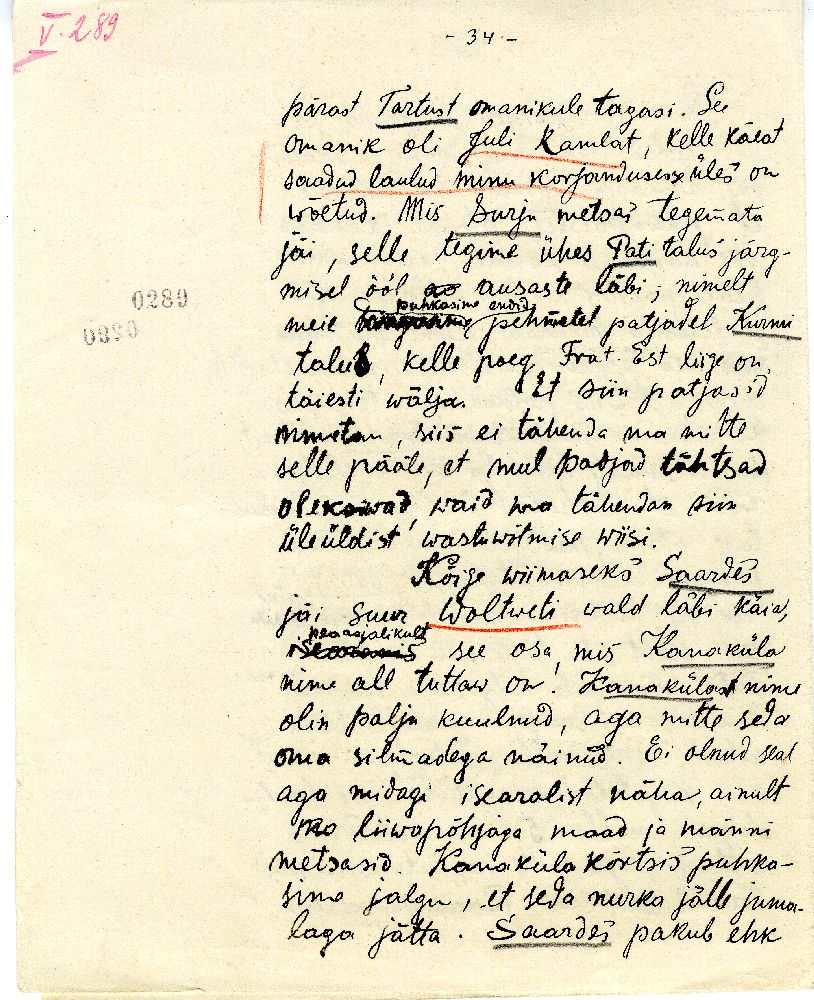 V. 289
- 34 -
pärast Tartust omanikule tagasi. See
omanik oli Juli Ramlat, kelle käest
saadud laulud minu korjanduses üles on
wõetud. Mis Surju metsas tegemata
jäi, selle tegime ühes Pati talus järg-
misel ööl ausaste läbi; nimelt
puhkasime endid
meie pehmetel patjadel Kurmi
talus, kelle poeg Frat. Est liige on,
täiesti wälja. Et siin patjasid
nimetan, siis ei tähenda ma mitte
selle pääle, et mul padjad tähtsad
oleksiwad, waid ma tähendan siin
üleüldist wastuwõtmise wiisi.
Kõige wiimaseks Saardes
jäi suur Woltweti wald läbi käia,
peaasjalikult
see osa, mis Kanaküla
nime all tuttaw on. Kanakülast nime
olin palju kuulnud, aga mitte seda
oma silmadega näinud. Ei olnud seal
aga midagi isearalist näha, ainult
liiwapõhjaga maad ja männi
metsasid. Kanaküla kõrtsis puhka-
sime jalgu, et seda nurka jälle juma-
laga jätta. Saardes pakub ehk
0289
0290